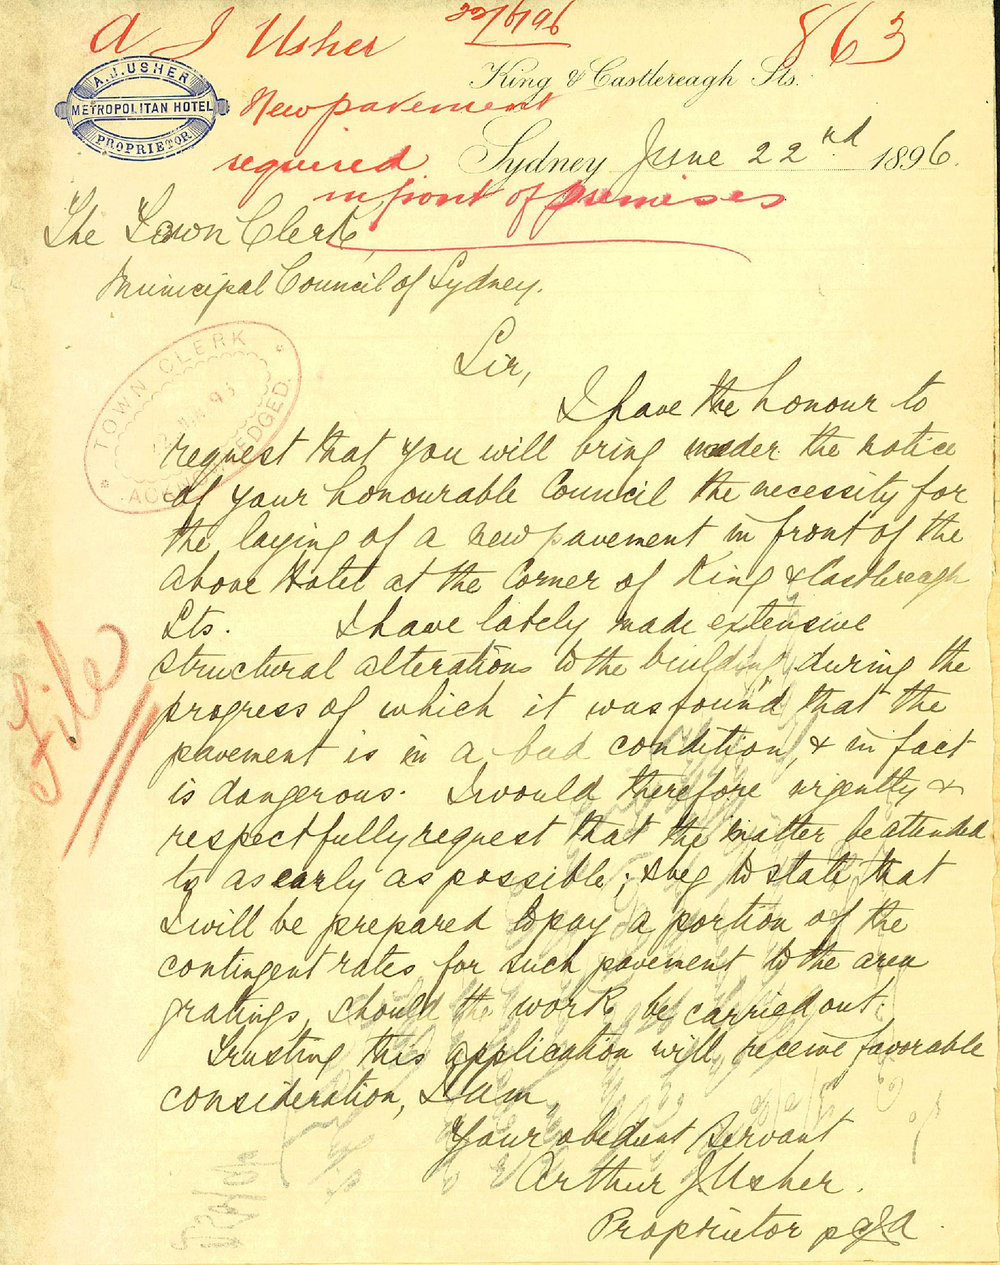 A J Usher
22/6/96
863
A. J. USHER
METROPOLITAN HOTEL
PROPRIETOR
King & Castlereagh Sts.
New pavement
required
in front of premises
Sydney June 22nd 1896.
The Town Clerk,
Municipal Council of Sydney.
TOWN CLERK
ACKNOWLEDGED.
Sir,
I have the honour to
request that you will bring under the notice
of your honourable Council the necessity for
the laying of a new pavement in front of the
above Hotel at the Corner of King & Castlereagh
Sts. I have lately made extensive
structural alterations to the building, during the
progress of which it was found that the
pavement is in a bad condition, & in fact
is dangerous. I would therefore urgently &
respectfully request that the matter be attended
to as early as possible; & beg to state that
I will be prepared to pay a portion of the
contingent rates for such pavement to the area
gratings, should the work be carried out.
Trusting this application will receive favorable
consideration, I am
Your obedient Servant
Arthur J. Usher.
Proprietor
File